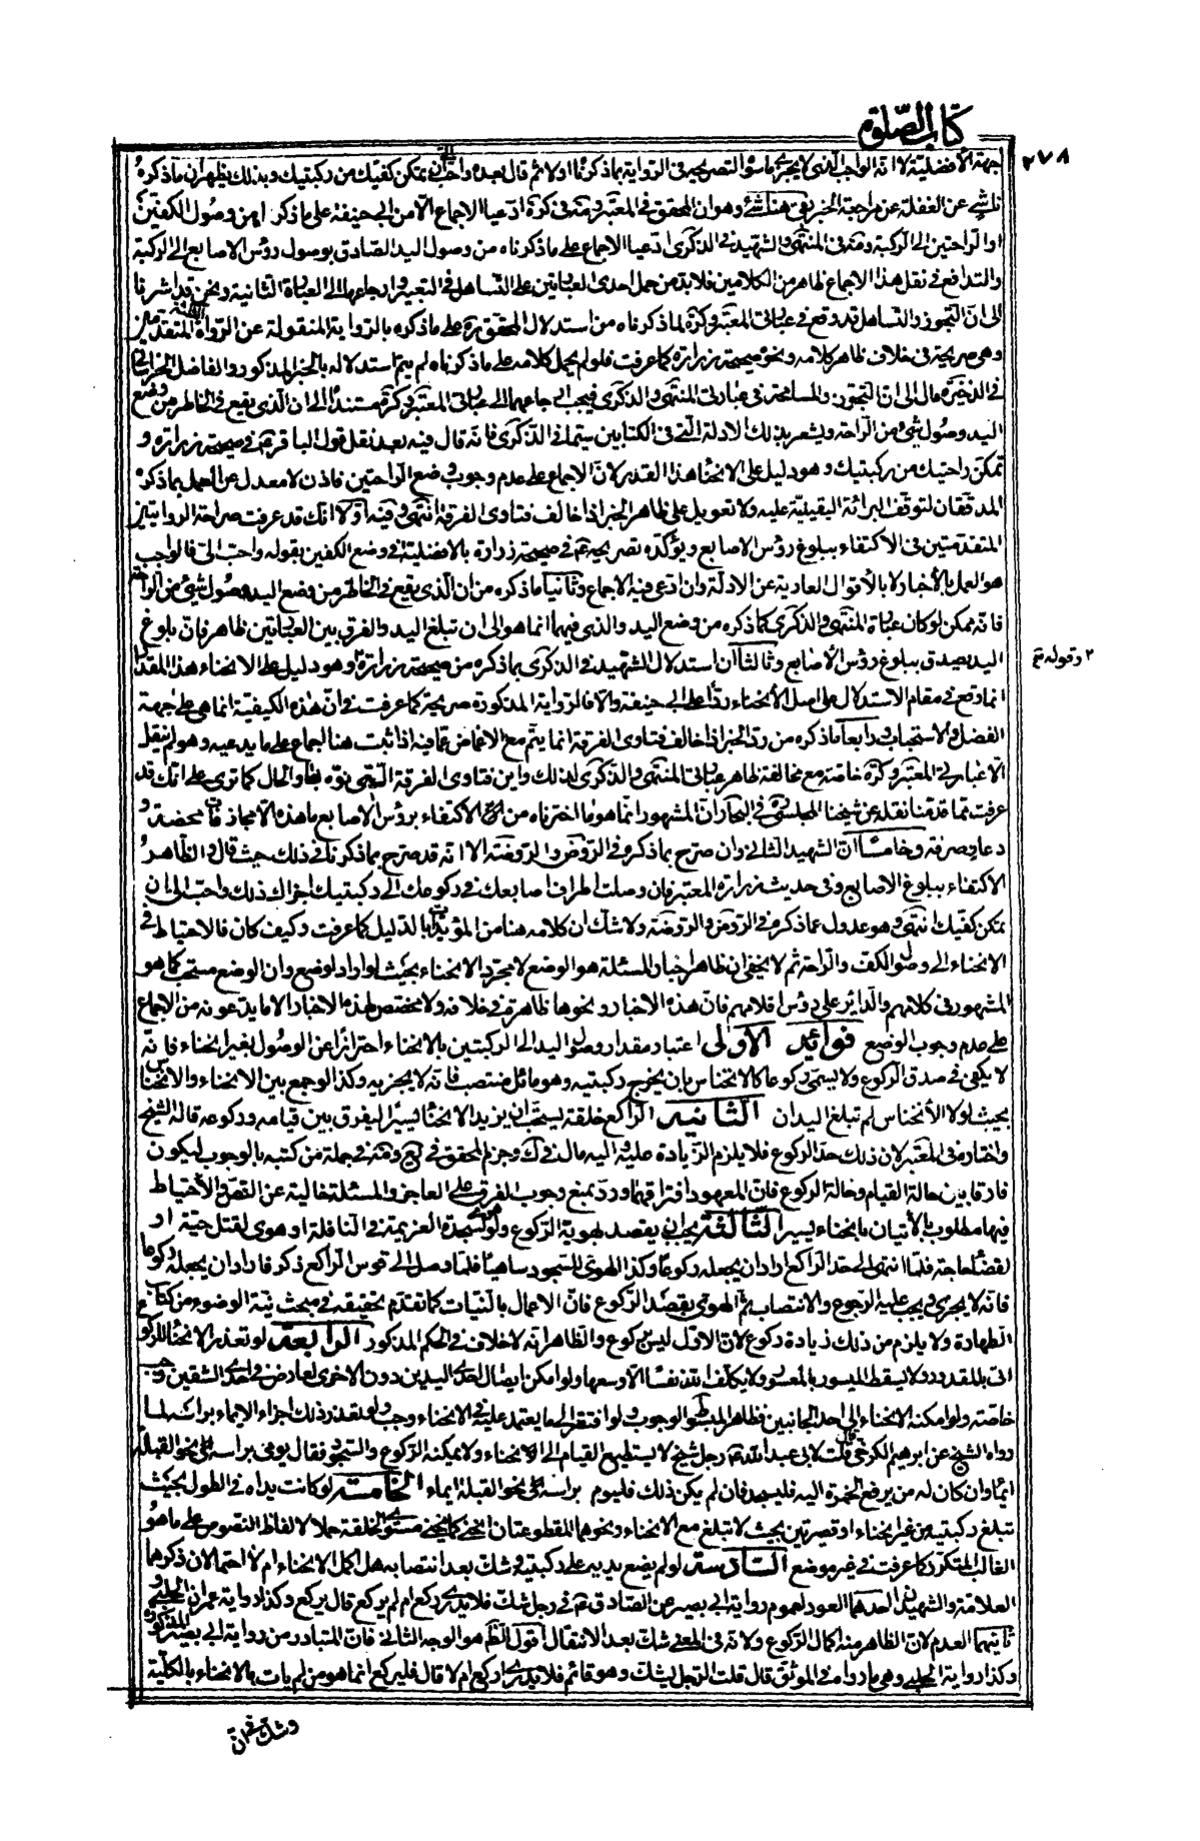 كتاب الصلوة
٢٧٨
جهة الأفضلية لا انه الواجب الذى لا يجزى ما سواه لتصريحه فى الرواية بما ذكرنا اولا ثم قال بعده واحب الى ان تمكن كفيك من ركبتيك وبذلك يظهر ان ما ذكره
ناشئ عن الغفلة عن مراجعة الخبر بقى هنا شئ وهو ان المحقق فى المعتبر ومثله فى كرة ادعيا الاجماع الا من ابى حنيفة على ما ذكر من وصول الكفين
او الراحتين الى الركبة ومثله فى المنتهى والشهيد فى الذكرى ادعيا الاجماع على ما ذكرناه من وصول اليد الصادق بوصول رؤس الاصابع الى الركبة
والتدافع فى نقل هذا الاجماع ظاهر من الكلامين فلا بد من حمل احدى العبارتين على التساهل فى التعبير وارجاعها الى العبارة الثانية ونحن قد اشرنا
الى ان التجوز والتساهل قد وقع فى عبارتى المعتبر وكرة لما ذكرناه من استدلال المحقق ره على ما ذكره بالرواية المنقولة عن الرواة المتقدمين
وهى صريحة فى خلاف ظاهر كلامه ونحوه صحيحة زرارة كما عرفت فلو لم يحمل كلامه على ما ذكرناه لم يتم استدلاله بالخبر المذكور والفاضل الخراسانى
فى الذخيرة مال الى ان التجوز والمسامحة فى عبارتى المنتهى والذكرى فيجب ارجاعهما الى عبارتى المعتبر وكرة مستندا الى ان الذى يقع فى الخاطر من وضع
اليد وصول شئ من الراحة ويشعر بذلك الادلة التى فى الكتابين سيما فى الذكرى فانه قال فيه بعد نقل قول الباقر ع فى صحيحة زرارة و
تمكن راحتيك من ركبتيك وهو دليل على الانحناء هذا القدر لان الاجماع على عدم وجوب وضع الراحتين فاذن لا معدل عن العمل بما ذكره
المدققان لتوقف البرائة اليقينية عليه ولا تعويل على ظاهر الخبر اذا خالف فتاوى الفرقة انتهى وفيه اولا انك قد عرفت صراحة الروايتين
المتقدمتين فى الاكتفاء ببلوغ رؤس الاصابع ويؤكده تصريحه ع فى صحيحة زرارة بالافضلية فى وضع الكفين بقوله واحب الى فالواجب
هو العمل بالأخبار لا بالأقوال العارية عن الادلة وان ادعى فيه الاجماع وثانيا ما ذكره من ان الذى يقع فى الخاطر من وضع اليد وصول شئ من الراحة
فانه ممكن لو كان عبارة المنتهى والذكرى كما ذكره من وضع اليد والذى فيهما انما هو الى ان تبلغ اليد والفرق بين العبارتين ظاهر فان بلوغ
اليد يصدق ببلوغ رؤس الأصابع وثالثا ان استدلال الشهيد فى الذكرى بما ذكره من صحيحة زرارة ٢ وهو دليل على الانحناء هذا المقدار
٢ وقوله ثم
انما وقع فى مقام الاستدلال على اصل الأنحناء ردا على ابى حنيفة والا فالرواية المذكورة صريحة كما عرفت فى ان هذه الكيفية انما هى على جهة
الفضل والاستحباب ورابعا ما ذكره من رد الخبر اذا خالف فتاوى الفرقة انما يتم مع الاغماض عما فيه اذا ثبت هنا اجماع على ما يدعيه وهو لم ينقل
الا عبارتى المعتبر وكرة خاصة مع مخالفة ظاهر عبارتى المنتهى والذكرى لذلك واين فتاوى الفرقة التى نوه بها والحال كما ترى على انك قد
عرفت مما قدمنا نقله عن شيخنا المجلسى ره فى البحار ان المشهور انما هو ما اخترناه من الاكتفاء برؤس الاصابع ما هذه الا مجازفة محضة و
دعاوٍ صرفة وخامسا ان الشهيد الثانى وان صرح بما ذكره فى الروض والروضة الا انه قد صرح بما ذكرنا فى ذلك حيث قال والظاهر
الاكتفاء ببلوغ الاصابع وفى حديث زرارة المعتبر فان وصلت اطراف اصابعك فى ركوعك الى ركبتيك اجزاك ذلك واحب الى ان
تمكن كفيك انتهى وهو عدول عما ذكره فى الروض والروضة ولا شك ان كلامه هنا من المؤيد بالدليل كما عرفت وكيف كان فالاحتياط فى
الانحناء الى وصول الكف والراحة ثم لا يخفى ان ظاهر اخبار المسئلة هو الوضع لا مجرد الانحناء بحيث لو اراد لوضع وان الوضع مستحب كما هو
المشهور فى كلامهم والدائر على رؤس اقلامهم فان هذه الاخبار ونحوها ظاهرة فى خلافه ولا مخصص لهذه الاخبار الا ما يدعونه من الاجماع
على عدم وجوب الوضع فوائد الاولى اعتبار مقدار وصول اليد الى الركبتين بالانحناء احترازا عن الوصول بغير انحناء فانه
لا يكفى فى صدق الركوع ولا يسمى ركوعا كالانخناس بان يخرج ركبتيه وهو مائل منتصب فانه لا يجزيه وكذا لو جمع بين الانحناء والانخناس
بحيث لولا الأنخناس لم تبلغ اليدان الثانية الراكع خلقة يستحب ان يزيد الانحناء يسيرا ليفرق بين قيامه وركوعه قاله الشيخ
واختاره فى المعتبر لان ذلك حد الركوع فلا يلزم الزيادة عليه واليه مال فى ك وجزم المحقق فى يع ومثله فى جملة من كتبه بالوجوب ليكون
فارقا بين حالة القيام وحالة الركوع فان المعهود افتراقهما ورد بمنع وجوب الفرق على العاجز والمسئلة خالية عن النص والأحتياط
فيها مطلوب بالأتيان بانحناء يسير الثالثة يجب ان يقصد بهويه الركوع ولو هوى لسجدة العزيمة فى النافلة او هوى لقتل حية او
لقضاء حاجة فلما انتهى الى حد الراكع اراد ان يجعله ركوعا وكذا لو هوى للسجود ساهيا فلما وصل الى قوس الراكع ذكر فاراد ان يجعله ركوعا
فانه لا يجزى ويجب عليه الرجوع والانتصاب ثم الهوى بقصد الركوع فان الاعمال بالنيات كما تقدم تحقيقه فى مبحث نية الوضوء من كتاب
الطهارة ولا يلزم من ذلك زيادة ركوع لان الاول ليس بركوع والظاهر انه لا خلاف فى الحكم المذكور الرابعة لو تعذر الانحناء للركوع
اتى بالمقدور ولا يسقط الميسور بالمعسور ولا يكلف الله نفسا الا وسعها ولو امكن ايصال احدى اليدين دون الاخرى لعارض فى احد الشقين وجب
خاصة ولو امكنه الانحناء الى احد الجانبين فظاهر المبسوط الوجوب ولو افتقر الى ما يعتمد عليه فى الانحناء وجب ولو تعذر ذلك اجزاء الايماء براسه لما
رواه الشيخ عن ابرهيم الكرخى قال قلت لابى عبد الله ع رجل شيخ لا يستطيع القيام الى الخلاء ولا يمكنه الركوع والسجود فقال يومى براسه ايماء نحو القبلة
ايماء وان كان له من يرفع الخمرة اليه فليسجد فان لم يكن ذلك فليوم براسه نحو القبلة ايماء الخامسة لو كانت يداه فى الطول بحيث
تبلغ ركبتيه من غير انحناء او قصرتين بحيث لا تبلغ مع الانحناء ونحوهما المقطوعتان انحنى كما ينحنى مستوى الخلقة حملا لالفاظ النصوص على ما هو
الغالب المتكرر كما عرفت فى غير موضع السادسة لو لم يضع يديه على ركبتيه وشك بعد انتصابه هل اكمل الانحناء ام لا احتمالان ذكرهما
العلامة والشهيدان احدهما العود لعموم رواية ابى بصير عن الصادق ع فى رجل شك فلا يدرى ركع ام لم يركع قال يركع وكذا رواية عمران الحلبى و
ثانيهما العدم لان الظاهر منه اكمال الركوع ولانه فى المعنى شك بعد الانتقال اقول الظ هو الوجه الثانى فان المتبادر من رواية ابى بصير المذكورة
وكذا رواية الحلبى وهى ما رواه فى الموثق قال قلت الرجل يشك وهو قائم فلا يدرى اركع ام لا قال فليركع انما هو من لم يات بالانحناء بالكلية